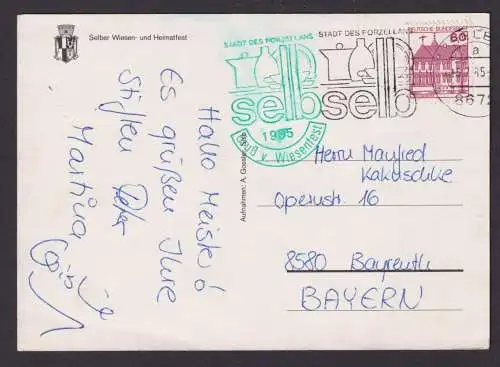 Selber Wiesen- und Heimatfest
STADT DES PORZELLANS
selb
1985
Gruß v. Wiesenfest
STADT DES PORZELLANS
selb
DEUTSCHE BUNDESPOST
60
SELB
a
85-
8672
Hallo Meister!
Es grüßen Ihre
Stiften Peter
Martina
Aufnahmen: A. Goessler, Selb
Herrn Manfred
Kakuschke
Opernstr. 16
8580 Bayreuth
BAYERN